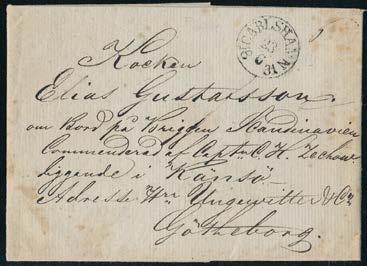 CARLSHAMN
31
Kocken
Elias Gustafsson
om Bord på Briggen Skandinavien
Commenderad af Captn C. H. Zechow
liggande i Känsö
Adresse Hrn Ungewitter & Co
Götheborg.